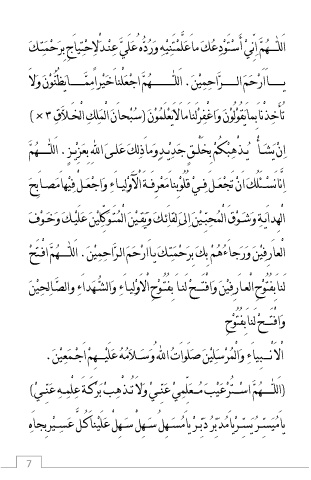 اَللّٰهُمَّ اِنِّيْ أَسْتَوْدِعُكَ مَا عَلَّمْتَنِيْهِ وَرُدَّهُ عَلَيَّ عِنْدَ الْاِحْتِيَاجِ بِرَحْمَتِكَ
يَا اَرْحَمَ الرَّاحِمِيْنَ . اَللّٰهُمَّ اجْعَلْنَا خَيْرًا مِمَّا يَظُنُّوْنَ وَلاَ
تُأَخِذْنَا بِمَا يَقُوْلُوْنَ وَاغْفِرْلَنَا مَا لَا يَعْلَمُوْنَ (سُبْحَانَ الْمَلِكِ الْخَلاَّقِ ×٣)
اِنْ يَشَأْ يُذْهِبْكُمْ بِخَلْقٍ جَدِيْدٍ وَمَا ذٰلِكَ عَلَى اللّٰهِ بِعَزِيْزٍ . اَللّٰهُمَّ
اِنَّا نَسْئَلُكَ اَنْ تَجْعَلَ فِيْ قُلُوْبِنَا مَعْرِفَةَ الْأَوْلِيَاءِ وَاجْعَلْ فِيْهَا مَصَابِحَ
الْهِدَايَةِ وَشَوْقَ الْمُحِبِّيْنَ اِلَى لِقَائِكَ وَيَقِيْنَ الْمُتَوَكِّلِيْنَ عَلَيْكَ وَخَوْفَ
الْعَارِفِيْنَ وَرَجَاءَهُمْ بِكَ بِرَحْمَتِكَ يَا اَرْحَمَ الرَّاحِمِيْنَ . اَللّٰهُمَّ افْتَحْ
لَنَا بِفُتُوْحِ الْعَارِفِيْنَ وَافْتَحْ لَنَا بِفُتُوْحِ الْاَوْلِيَاءِ وَالشُّهَدَاءِ وَالصَّالِحِيْنَ
وَافْتَحْ لَنَا بِفُتُوْحِ
الْاَنْبِيَاءِ وَالْمُرْسَلِيْنَ صَلَوَاتُ اللّٰهِ وَسَلَامُهُ عَلَيْهِمْ اَجْمَعِيْنَ .
(اَللّٰهُمَّ اسْتُرْ عَيْبَ مُعَلِّمِيْ عَنِّيْ وَلَا تُذْهِبْ بَرَكَةَ عِلْمِهِ عَنِّيْ)
يَا مُيَسِّرُ يَسِّرْ يَا مُدَبِّرُ دَبِّرْ يَا مُسَهِّلُ سَهِّلْ سَهِّلْ عَلَيْنَا كُلَّ عَسِيْرٍ بِجَاهِ
7